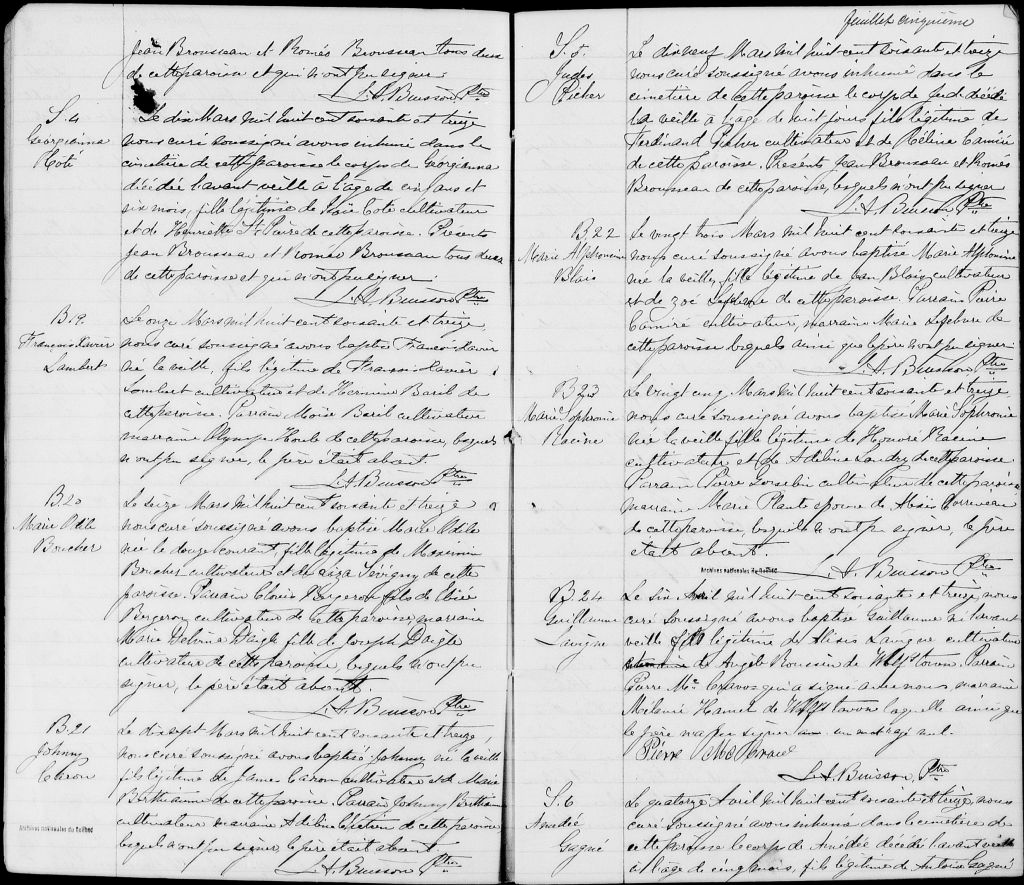 Jean Brousseau et Roméo Brousseau tous deux
de cette paroisse et qui n'ont pu signer.
L. A. Buisson Ptre
S. 4
Georgianna
Coté
Le dix Mars mil huit cent soixante et treize
nous curé soussigné avons inhumé dans le
cimetière de cette paroisse le corps de Georgianna
décédée l'avant veille à l'âge de cinq ans et
six mois, fille légitime de Coté cultivateur
et de Henriette St Pierre de cette paroisse. Présents
Jean Brousseau et Roméo Brousseau tous deux
de cette paroisse et qui n'ont pu signer.
L. A. Buisson Ptre
B. 19.
François Xavier
Lambert
Le onze Mars mil huit cent soixante et treize,
nous curé soussigné avons baptisé Francois Xavier
né la veille, fils légitime de Xavier
Lambert cultivateur et de Hermine Baril de
cette paroisse. Parrain Moïse Baril cultivateur
marraine Olympe Houle de cette paroisse, lesquels
n'ont pu signer, le père était absent.
L. A. Buisson Ptre
B. 20
Marie Odile
Boucher
Le seize Mars mil huit cent soixante et treize
nous curé soussigné avons baptisé Marie Odile
née le douze courant, fille légitime de
Boucher cultivateur et de Sévigny de cette
paroisse. Parrain Clovis Bergeron fils de
Bergeron cultivateur de cette paroisse, marraine
Marie Daigle fille de Joseph Daigle
cultivateur de cette paroisse, lesquels n'ont pu
signer, le père était absent.
L. A. Buisson Ptre
B. 21
Johnny
Caron
Le dix sept Mars mil huit cent soixante et treize,
nous curé soussigné avons baptisé Johnny né la veille
fils légitime de James Caron cultivateur et de Marie
Berthiaume de cette paroisse. Parrain Johnny Berthiaume
cultivateur marraine Adeline de cette paroisse
lesquels n'ont pu signer, le père était absent.
L. A. Buisson Ptre
Archives nationales du Québec
feuillet cinquième
S. 5.
Judes
Picher
Le dix neuf Mars mil huit cent soixante et treize
nous curé soussigné avons inhumé dans le
cimetière de cette paroisse le corps de Jude décédé
la veille à l'âge de huit jours fils légitime de
Ferdinand Picher cultivateur et de Hélène Camiré
de cette paroisse. Présents Jean Brousseau et Roméo
Brousseau de cette paroisse, lesquels n'ont pu signer
L. A. Buisson Ptre
B 22
Marie Alphonsine
Blais
Le vingt trois Mars mil huit cent soixante et treize
nous curé soussigné avons baptisé Marie Alphonsine
née la veille, fille légitime de Jean Blais cultivateur
et de Zoé Lefebvre de cette paroisse. Parrain Pierre
Camiré cultivateur, marraine Marie Lefebvre de
cette paroisse lesquels ainsi que le père n'ont pu signer
L. A. Buisson Ptre
B 23
Marie Sophronie
Racine
Le vingt cinq Mars mil huit cent soixante et treize
nous curé soussigné avons baptisé Marie Sophronie
née la veille fille légitime de Honoré Racine
cultivateur et de Adéline Landry de cette paroisse
Parrain Pierre cultivateur de cette paroisse
marraine Marie Plante épouse de Corriveau
de cette paroisse, lesquels n'ont pu signer, le père
était absent.
Archives nationales du Québec
L. A. Buisson Ptre
B 24
Guillaume
Lavigne
Le six Avril mil huit cent soixante et treize, nous
curé soussigné avons baptisé Guillaume né l'avant
veille fils légitime de Alexis Lavigne cultivateur
de Angèle Roussin de Parrain
Pierre qui a signé avec nous, marraine
Mélanie Hamel de laquelle ainsi que
le père n'a pu signer un mot rayé nul.
Pierre
L. A. Buisson, Ptre
S. 6
Amedée
Gagné
Le quatorze Avril mil huit cent soixante et treize, nous
curé soussigné avons inhumé dans le cimetière de
cette paroisse le corps de Amedée décédé l'avant veille
à l'âge de cinq mois, fils légitime de Antoine Gagné